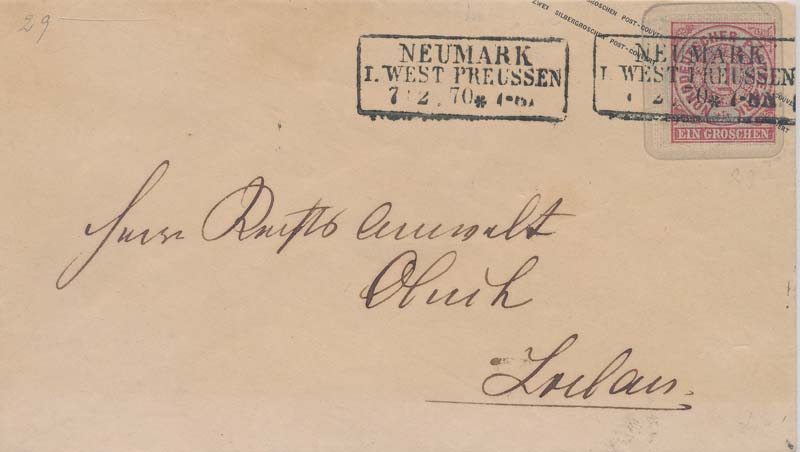 29
ZWEI SILBERGROSCHEN POST-COUVERT
NEUMARK
I. WEST PREUSSEN
7 2 70 *
NEUMARK
I. WEST PREUSSEN
2 70 * 7-8N
EIN GROSCHEN
Herrn Rechts Anwalt
Obuch
Loebau